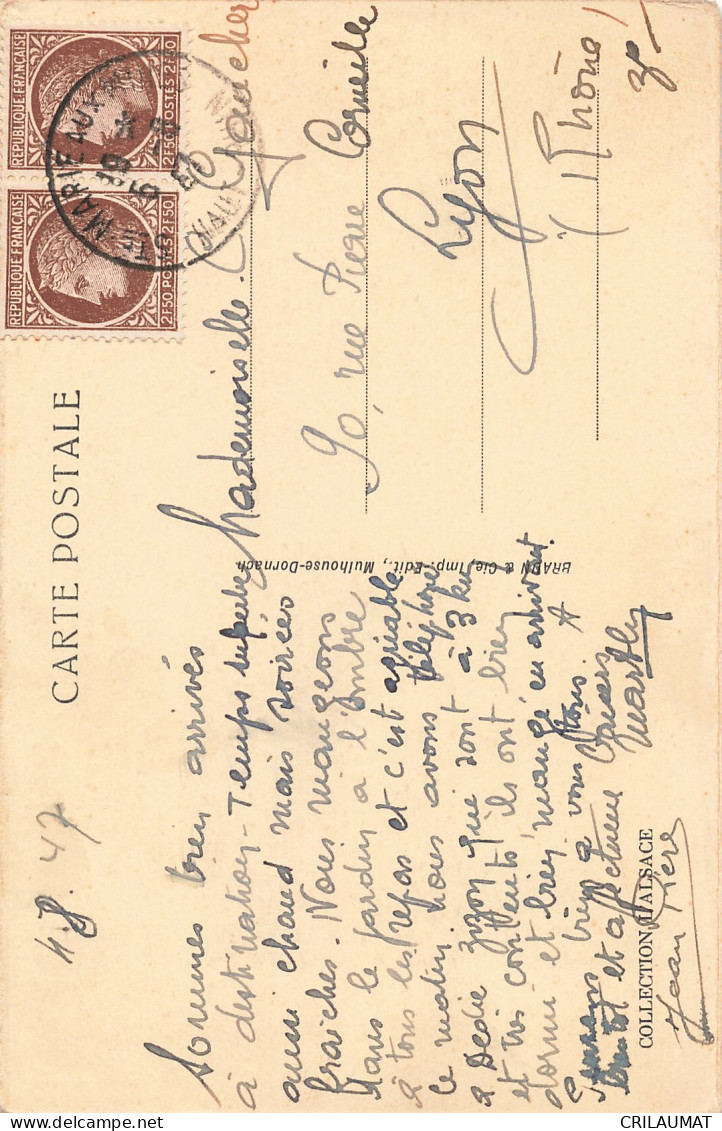 CARTE POSTALE
4.8.47
Sommes bien arrivés
à destination - Temps superbe
aussi chaud mais soirées
fraîches. Nous mangeons
dans le jardin à l'ombre
à tous les repas et c'est agréable
le matin. nous avons téléphoné
à Dédé Zizou qui sont à 3 km
et très contents ils ont bien
dormi et bien mangé en arrivant.
bien à vous tous. A
bientôt et affectueux baisers
Jean Pierre
COLLECTION D'ALSACE
BRAUN & Cie, Imp.-Edit., Mulhouse-Dornach
Mademoiselle Gaucher
90, rue Pierre Corneille
Lyon
(Rhône)
REPUBLIQUE FRANÇAISE
2F50 POSTES 2F50
REPUBLIQUE FRANÇAISE
2F50 POSTES 2F50
STE MARIE AUX MINES
CRILAUMAT